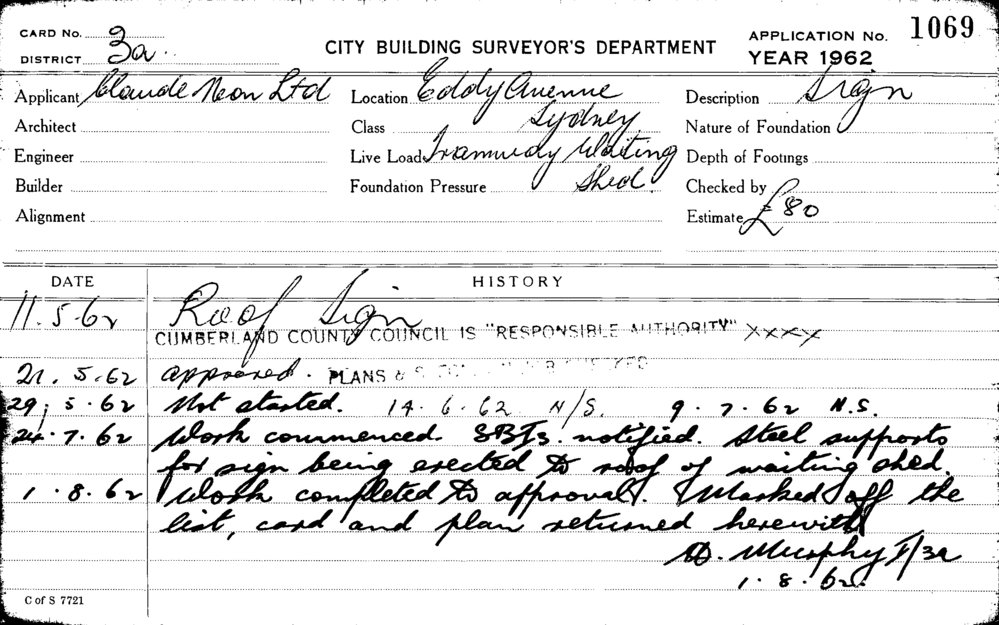 CARD No. 3a
DISTRICT
CITY BUILDING SURVEYOR'S DEPARTMENT
APPLICATION No. 1069
YEAR 1962
Applicant Claude Neon Ltd
Location Eddy Avenue
Description Sign
Architect
Class Sydney
Nature of Foundation
Engineer
Live Load Tramway Waiting
Depth of Footings
Builder
Foundation Pressure Shed
Checked by
Alignment
Estimate £80
DATE HISTORY
11.5.62 Roof Sign
CUMBERLAND COUNTY COUNCIL IS "RESPONSIBLE AUTHORITY" xxxx
21.5.62 approved. PLANS &
29.5.62 Not started. 14.6.62 N/S. 9.7.62 N.S.
24.7.62 Work commenced. notified. Steel supports
for sign being erected to roof of waiting shed.
1.8.62 Work completed to approval. Marked off the
list, card and plan returned herewith
Murphy I/3a
1.8.62.
C of S 7721